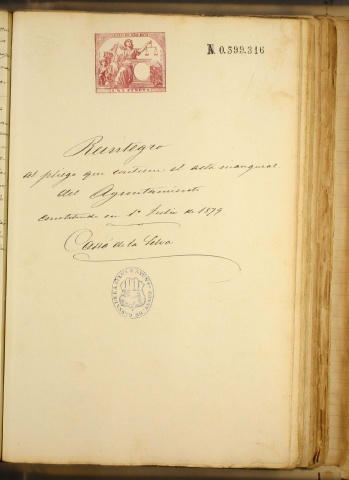 N 0.399.316
Reintegro
al pliego que contiene el acta inaugural
del Ayuntamiento
constituido en 1º Julio de 1879
Cassá de la Selva